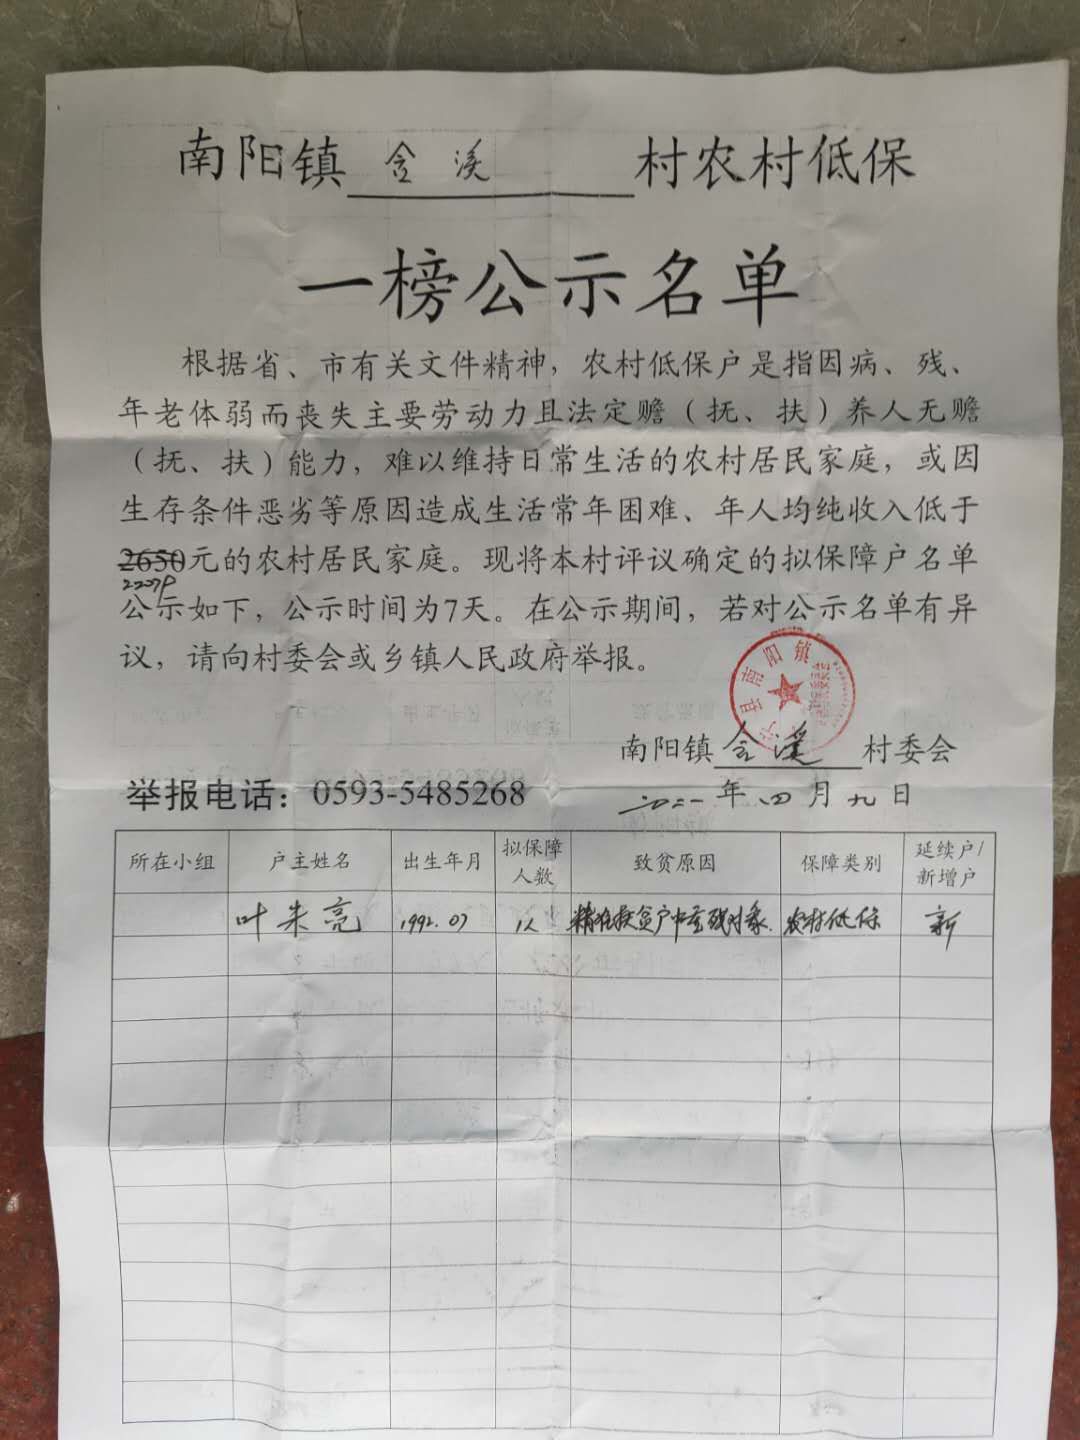 南阳镇 含溪 村农村低保
一榜公示名单
根据省、市有关文件精神，农村低保户是指因病、残、
年老体弱而丧失主要劳动力且法定赡（抚、扶）养人无赡
（抚、扶）能力，难以维持日常生活的农村居民家庭，或因
生存条件恶劣等原因造成生活常年困难、年人均纯收入低于
2650元的农村居民家庭。现将本村评议确定的拟保障户名单
公示如下，公示时间为7天。在公示期间，若对公示名单有异
议，请向村委会或乡镇人民政府举报。
宁县南阳镇
南阳镇 含溪 村委会
举报电话：0593-5485268 二〇二一年四月九日
所在小组 户主姓名 出生年月 拟保障人数 致贫原因 保障类别 延续户/新增户
叶朱亮 1992.07 1人 精准扶贫户中重残对象. 农村低保 新